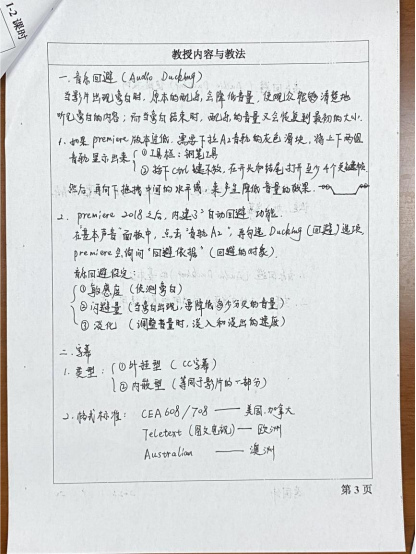 1-2 课时
教授内容与教法
一. 音乐回避 (Audio Ducking)
当影片出现旁白时, 原本的配乐会降低音量, 使观众能够清楚地
听见旁白的内容; 而当旁白结束时, 配乐的音量又会恢复到最初的大小.
1. 如果 premiere 版本过低, 需要下拉 A2 音轨的灰色滑块, 将上下两个
音轨显示出来 ① 工具框: 钢笔工具
② 按下 Ctrl 键不放, 在开头和结尾打开至少4个关键帧.
然后, 再向下拖拽中间的水平线, 来产生降低音量的效果.
2. premiere 2018 之后, 内建了"自动回避"功能.
在基本声音"面板中, 点击"音轨 A2", 再勾选 Ducking (回避) 选项
premiere 会询问"回避依据" (回避的对象).
音乐回避设定:
① 敏感度 (侦测旁白)
② 闪避量 (当旁白出现, 要降低多少分贝的音量)
③ 淡化 (调整音量时, 淡入和淡出的速度)
二. 字幕
1. 类型: ① 外挂型 (CC字幕)
② 内嵌型 (等同于影片的一部分)
2. 格式标准: CEA 608/708 —— 美国.加拿大
Teletext (图文电视) —— 欧洲
Australian —— 澳洲
第 3 页